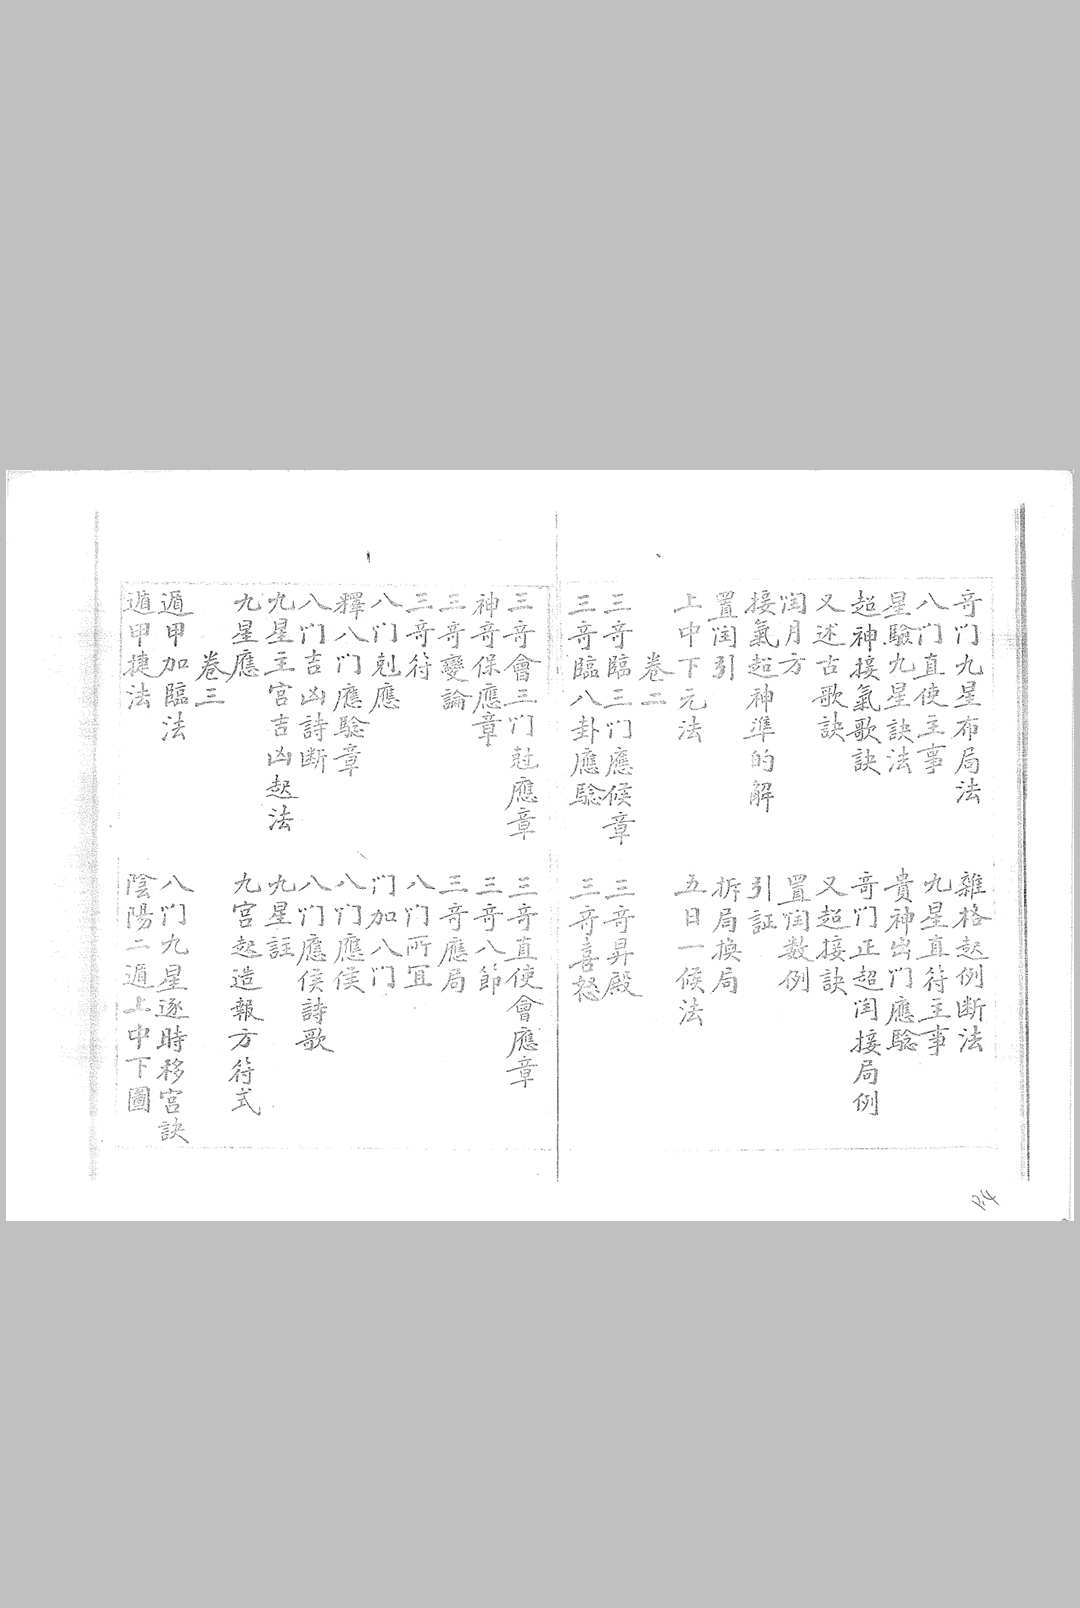 奇门九星布局法
雜格起例断法
八门直使主事
九星直符主事
星驗九星訣法
貴神出门應驗
超神接氣歌訣
奇门正超闰接局例
又述古歌訣
又超接訣
闰月方
置闰数例
接氣超神準的解
引証
置闰引
拆局換局
上中下元法
五日一候法
卷二
三奇臨三门應候章
三奇昇殿
三奇臨八卦應驗
三奇喜怒
三奇會三门尅應章
三奇直使會應章
神奇保應章
三奇八節
三奇變論
三奇應局
三奇符
八门所冝
八门剋應
门加八门
釋八门應驗章
八门應候
八门吉凶詩断
八门應候詩歌
九星主宮吉凶起法
九星註
九星應
九宮起造報方符式
卷三
遁甲加臨法
八门九星逐時移宮訣
遁甲捷法
陰陽二遁上中下圖
P.4